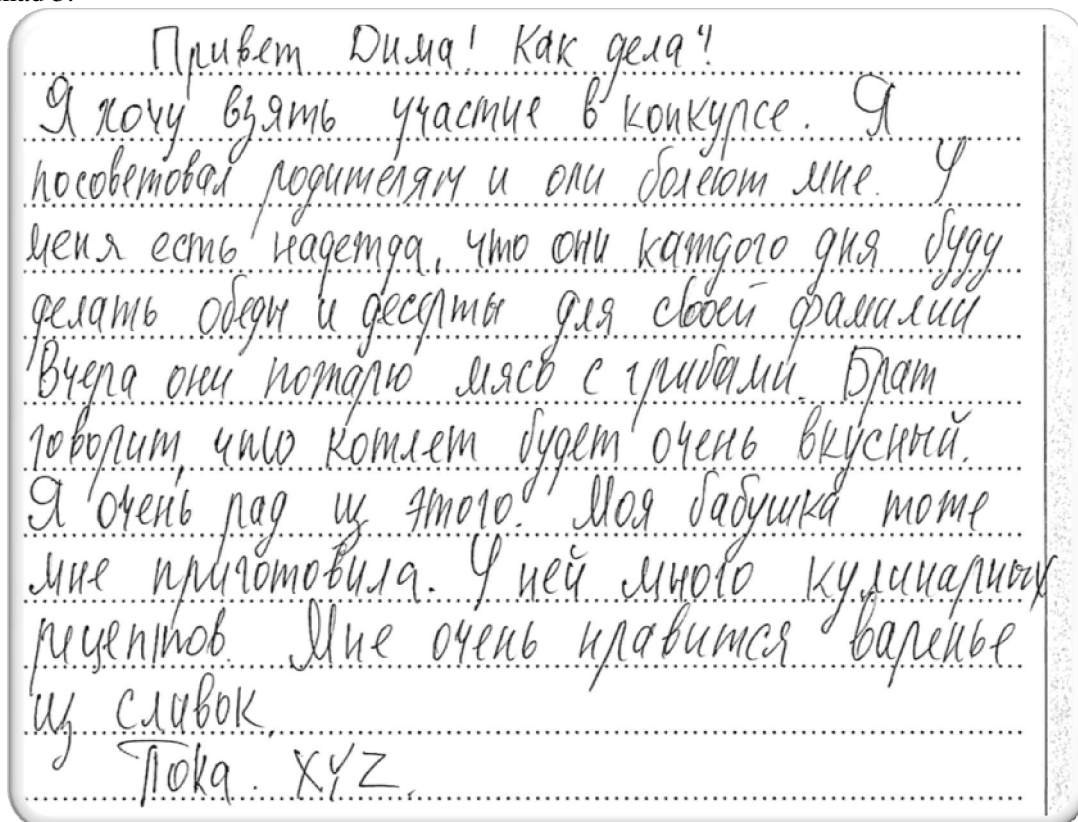 Привет Дима! Как дела?
Я хочу взять участие в конкурсе. Я
посоветовал родителям и они болеют мне. У
меня есть надетда, что они катдого дня буду
делать обеды и десерты для своей фамилии
Вчера они потарю мясо с грибами. Брат
говорит, что котлет будет очень вкусный.
Я очень рад из этого. Моя бабушка тоте
мне приготовила. У ней много кулинарных
рецептов. Мне очень нравится варенье
из сливок.
Пока. XYZ.